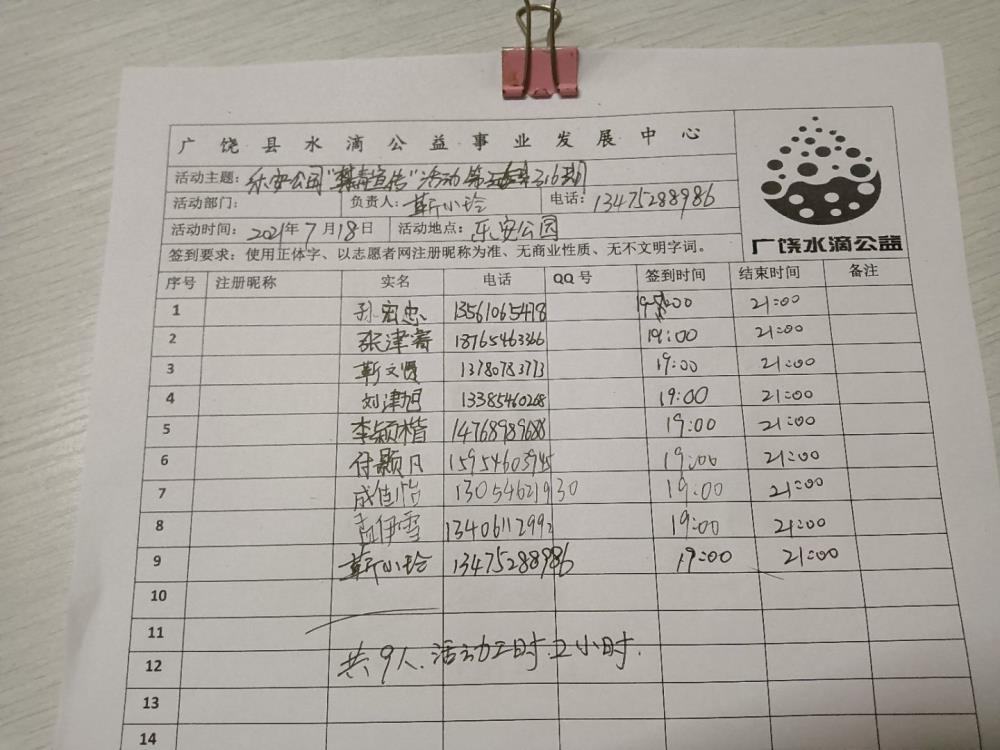 广饶县水滴公益事业发展中心
活动主题：乐安公园"禁毒宣传"活动第 316期
活动部门： 负责人：靳小玲 电话：13475288986
活动时间：2021年7月18日 活动地点：乐安公园
广饶水滴公益
签到要求：使用正体字、以志愿者网注册昵称为准、无商业性质、无不文明字词。
序号 注册昵称 实名 电话 QQ号 签到时间 结束时间 备注
1 孙宏忠 13561065478 21:00
2 张津 18765463366 19:00 21:00
3 靳文贤 13780783773 19:00 21:00
4 刘津旭 13385460268 19:00 21:00
5 李颖楷 14768989688 19:00 21:00
6 付颢凡 15954603945 19:00 21:00
7 成佳怡 13054621930 19:00 21:00
8 孟伊雪 13406112992 19:00 21:00
9 靳小玲 13475288986 19:00 21:00
10
11
12 共9人、活动工时 2小时.
13
14